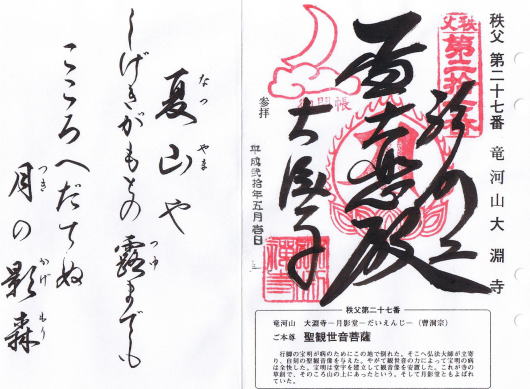 秩父 第二十七番 竜河山大淵寺
大悲殿
大渕寺
参拝
平成弐拾年五月壱日
秩父第二十七番
竜河山 大淵寺－月影堂－だいえんじ－(曹洞宗)
ご本尊 聖観世音菩薩
行脚の宝明が病のためにこの地で倒れた。そこへ弘法大師が立寄
り、自刻の聖観音像を与えた。やがて観世音の力によって宝明の病
は全快した。宝明は堂宇を建立して観音像を安置した。これが寺の
草創で、そのころ山の上にあったという。そして月影堂ともよばれ
ていた。
夏山や
なつ やま
しげきがもとの露までも
つゆ
こころへだてぬ
月の影森
つき かげ もり